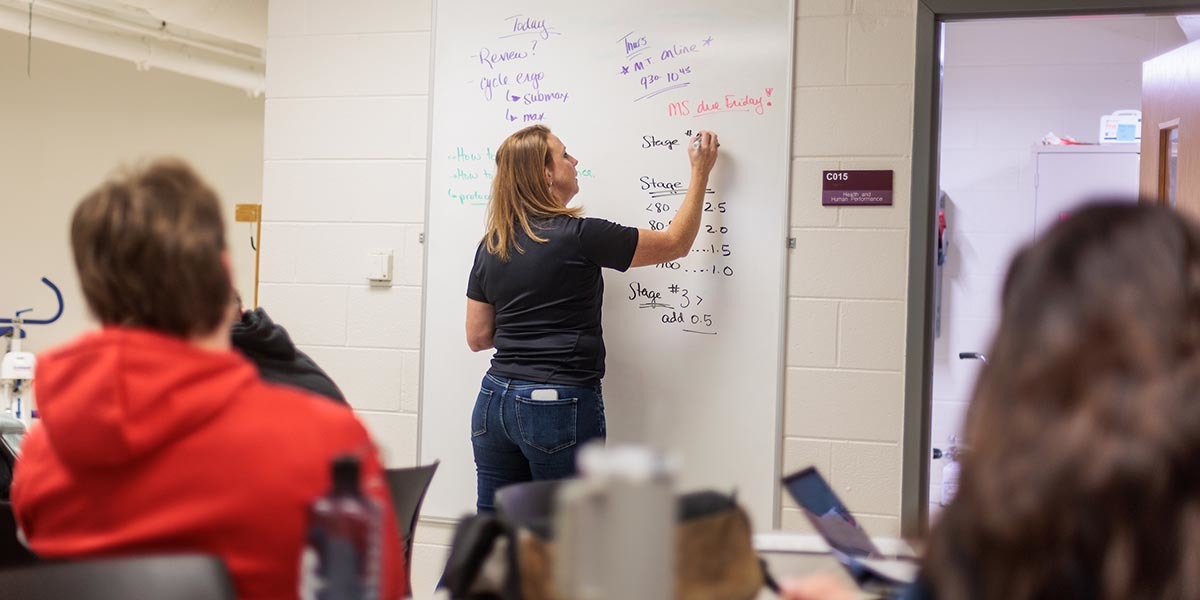 Today
- Review?
- cycle ergo
↳ submax
↳ max
Thurs
* MT online *
9³⁰ 10⁴⁵
MS due Friday!
- How to
- How to
↳ protoc
Stage #
Stage
<80 2.5
80 2.0
.... 1.5
.... 1.0
Stage #3 >
add 0.5
C015
Health and
Human Performance